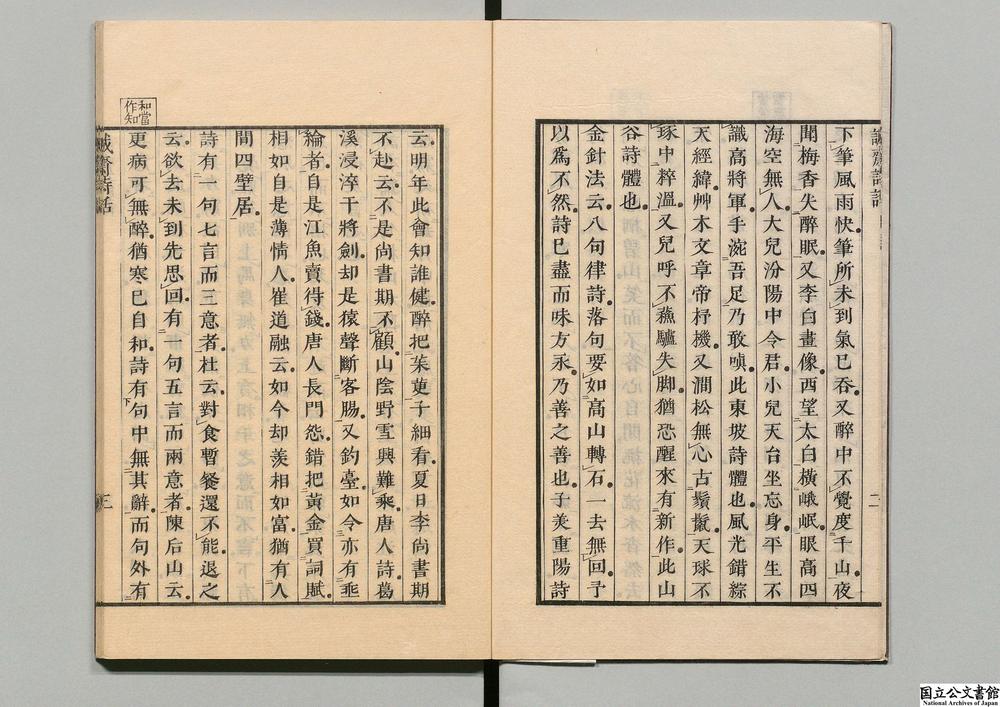 誠齋詩話
二
下筆風雨快筆所未到氣已吞又醉中不覺度千山夜
聞梅香失醉眠又李白畫像西望太白橫峨岷眼高四
海空無人大兒汾陽中令君小兒天台坐忘身平生不
識高將軍手涴吾足乃敢嗔此東坡詩體也風光錯綜
天經緯艸木文章帝杼機又澗松無心古鬚鬣天球不
琢中粹溫又兒呼不蘓驢失脚猶恐醒來有新作此山
谷詩體也
金針法云八句律詩落句要如高山轉石一去無回予
以爲不然詩已盡而味方永乃善之善也子美重陽詩
云明年此會知誰健醉把茱萸子細看夏日李尚書期
不赴云不是尚書期不顧山陰野雪興難乘唐人詩葛
溪浸淬干將劍却是猿聲斷客腸又釣臺如今亦有垂
綸者自是江魚賣得錢唐人長門怨錯把黃金買詞賦
相如自是薄情人崔道融云如今却羨相如富猶有人
間四壁居
詩有一句七言而三意者杜云對食暫餐還不能退之
云欲去未到先思回有一句五言而兩意者陳后山云
更病可無醉猶寒已自和詩有句中無其辭而句外有
和當
作知
誠齋詩話
三
国立公文書館
National Archives of Japan